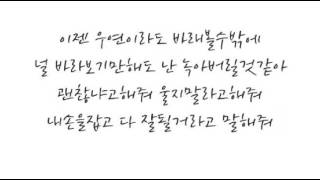 이젠 우연이라도 바래볼수밖에
널 바라보기만해도 난 녹아버릴것같아
괜찮냐고해줘 울지말라고해줘
내손을잡고 다 잘될거라고 말해줘